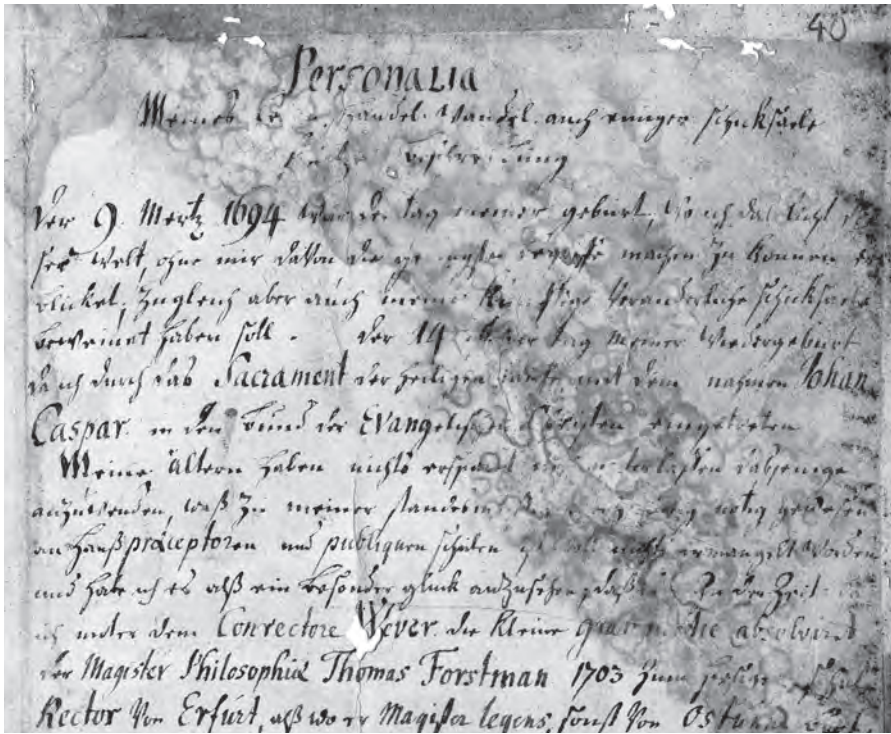 40
Personalia
Meines Handel. Wandel. auch einiger schicksaele
beschreibung
Der 9. Mertz 1694 war der tag meiner geburt, wo ich das licht die
ser Welt, ohne mir davon die begriffe machen zu konnen er
blicket, zugleich aber auch meine künftige veranderliche schicksaele
beweinet haben soll. der 14 der tag meiner wiedergeburt
da ich durch das Sacrament der heiligen tauffe mit dem nahmen Johan
Caspar in den bund der Evangelischen Christen eingetreten
Meine ältern haben nichts erspart dasjenige
anzuwenden, waß zu meiner nötig gewesen
an haußpræceptoren und publiquen schulen nichts ermangelt worden
und habe ich es alß ein besonder glück anzusehen, daß zu der Zeit
ich unter dem Conrectore Wever die kleine absolviret
der Magister Philosophiæ Thomas Forstman 1703 zum
Rector von Erfurt, alß wo er Magister legens, sonst von